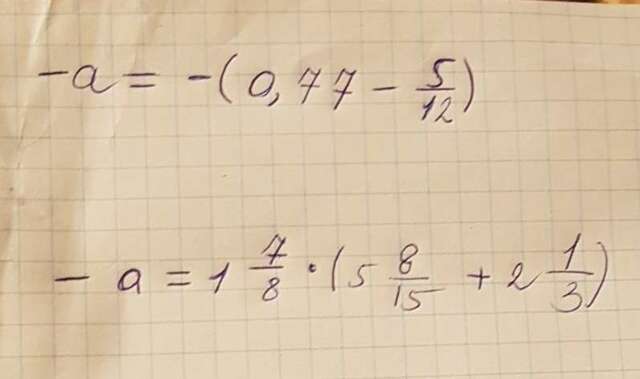 -a = -(0,77 - 5/12)
- a = 1 7/8 · (5 8/15 + 2 1/3)